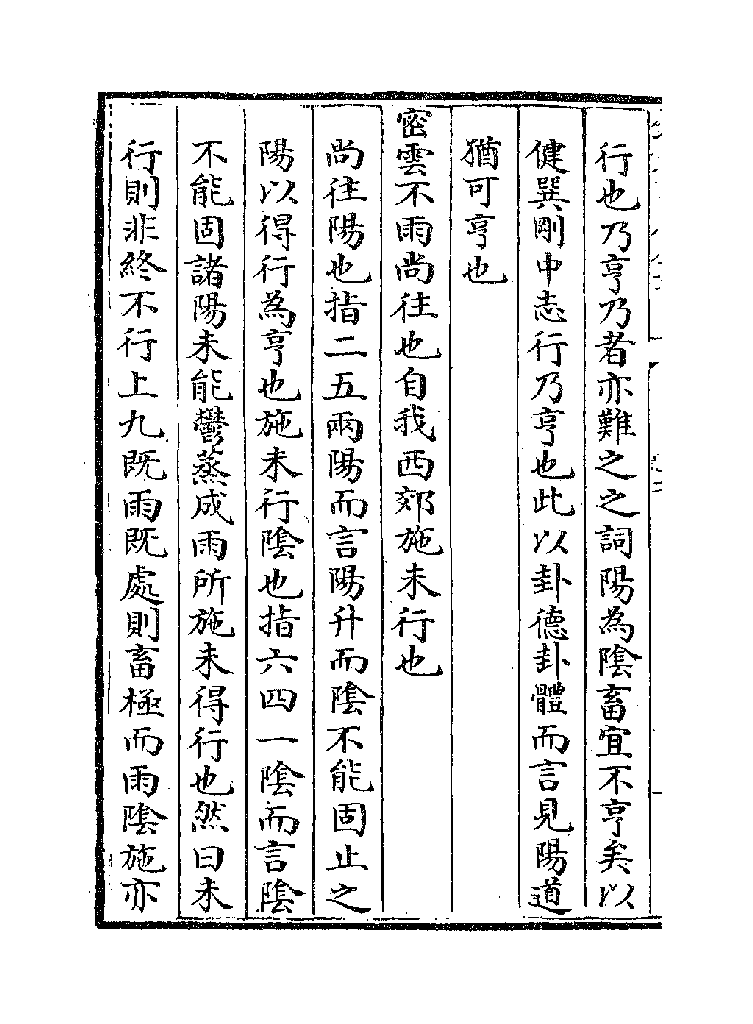 行也乃亨乃者亦難之之詞陽為陰畜宜不亨矣以
健巽剛中志行乃亨也此以卦德卦體而言見陽道
猶可亨也
密雲不雨尚往也自我西郊施未行也
尚往陽也指二五兩陽而言陽升而陰不能固止之
陽以得行為亨也施未行陰也指六四一陰而言陰
不能固諸陽未能鬱蒸成雨所施未得行也然曰未
行則非終不行上九既雨既處則畜極而雨陰施亦